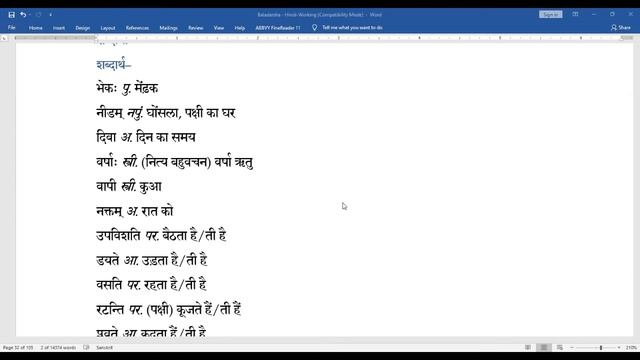 Baladarsha - Hindi-Working [Compatibility Mode] - Word
Sign in
File Home Insert Design Layout References Mailings Review View ABBYY FineReader 11 Tell me what you want to do
शब्दार्थ–
भेकः पु. मेंढ़क
नीडम् नपुं. घोंसला, पक्षी का घर
दिवा अ. दिन का समय
वर्षाः स्त्री. (नित्य बहुवचन) वर्षा ऋतु
वापी स्त्री. कुआ
नक्तम् अ. रात को
उपविशति पर. बैठता है/ती है
डयते आ. उड़ता है/ती है
वसति पर. रहता है/ती है
रटन्ति पर. (पक्षी) कूजते हैं/ती हैं
प्लवते आ. कूदता है/ती है
Page 32 of 105 2 of 14374 words Sanskrit 210%